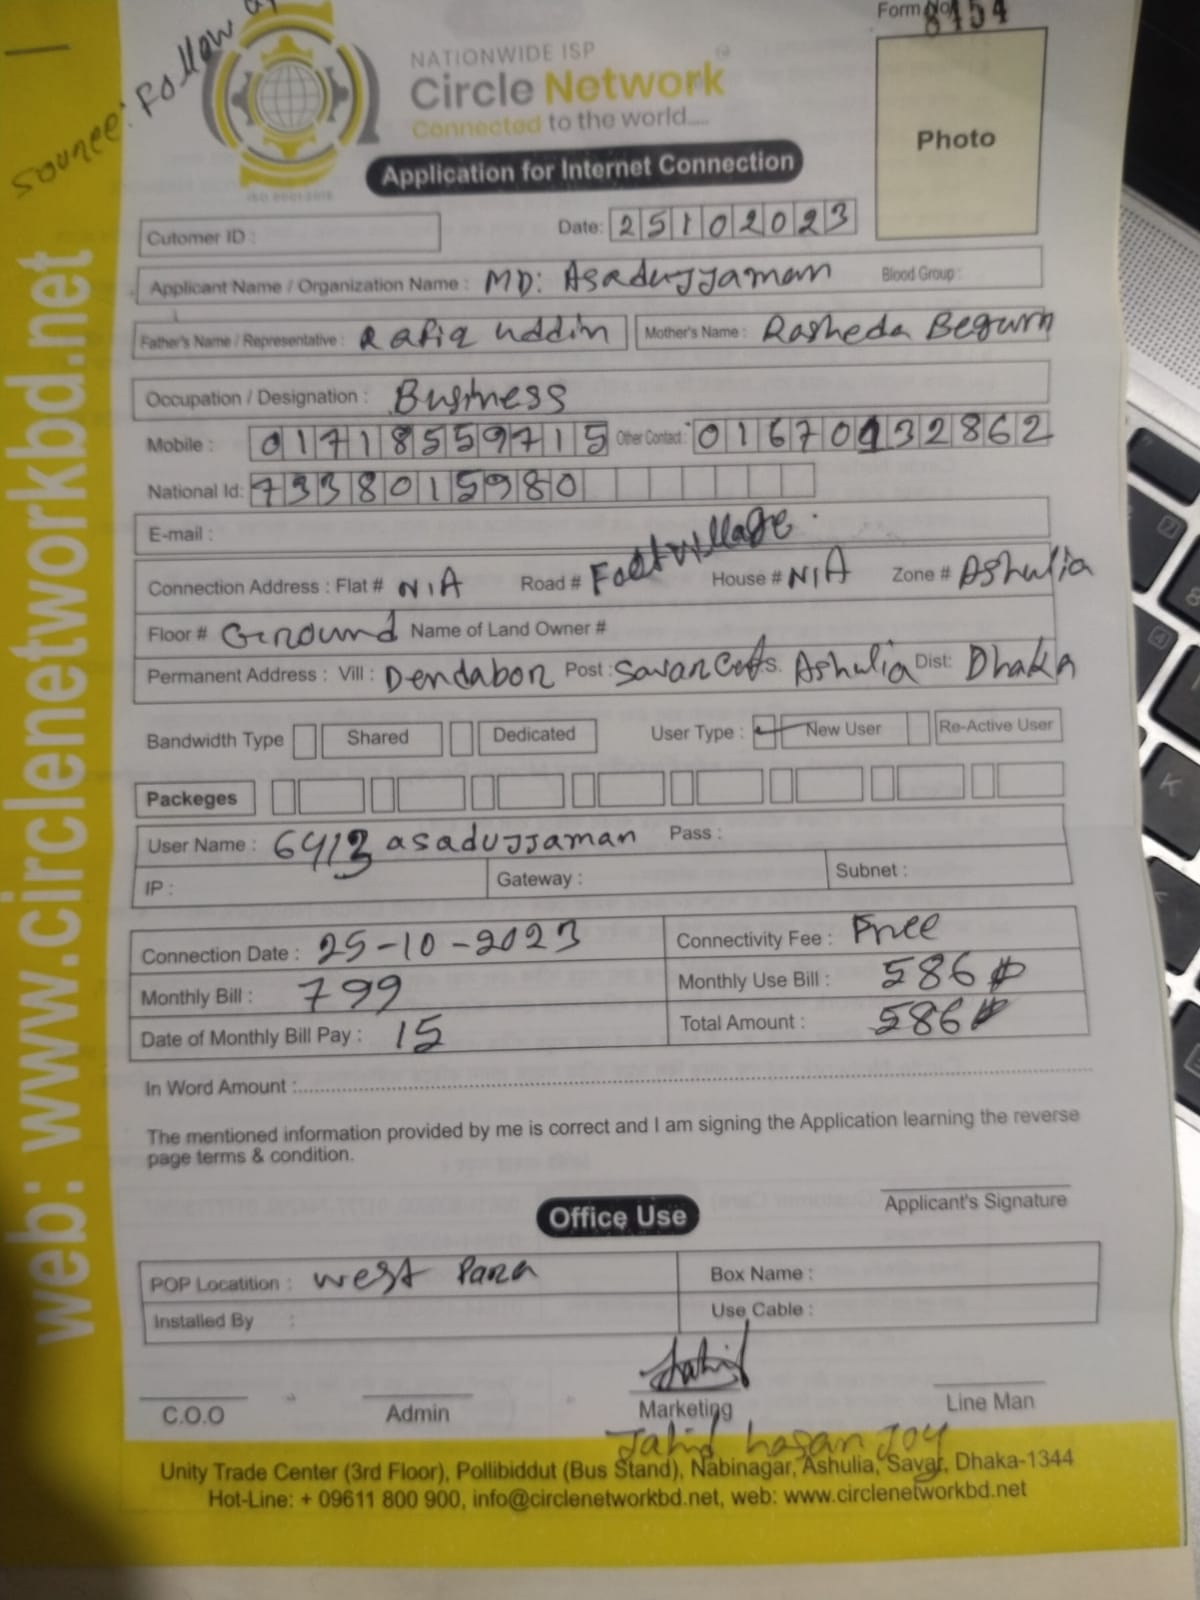 Source: Follow
Form No 8154
NATIONWIDE ISP
Circle Network
Connected to the world....
Application for Internet Connection
Photo
ISO 9001:2015
Cutomer ID :
Date: 25102023
Applicant Name / Organization Name : MD: Asadujjaman Blood Group :
Father's Name / Representative : Rafiq uddin Mother's Name : Rasheda Begum
Occupation / Designation : Business
Mobile : 01718559715 Other Contact : 01670132862
National Id: 7338015980
E-mail :
Connection Address : Flat # N/A Road # village. House # N/A Zone # Ashulia
Floor # Ground Name of Land Owner #
Permanent Address : Vill : Dendabor Post : Savar P.S. Ashulia Dist: Dhaka
Bandwidth Type Shared Dedicated User Type : New User Re-Active User
Packeges
User Name : 6413asadujjaman Pass :
IP : Gateway : Subnet :
Connection Date : 25-10-2023 Connectivity Fee : Free
Monthly Bill : 799 Monthly Use Bill : 586
Date of Monthly Bill Pay : 15 Total Amount : 586
In Word Amount :
The mentioned information provided by me is correct and I am signing the Application learning the reverse
page terms & condition.
Applicant's Signature
Office Use
POP Locatition : west Para Box Name :
Installed By : Use Cable :
Jahid
C.O.O Admin Marketing Line Man
Jahid hasan Joy
Unity Trade Center (3rd Floor), Pollibiddut (Bus Stand), Nabinagar, Ashulia, Savar, Dhaka-1344
Hot-Line: + 09611 800 900, info@circlenetworkbd.net, web: www.circlenetworkbd.net
web: www.circlenetworkbd.net